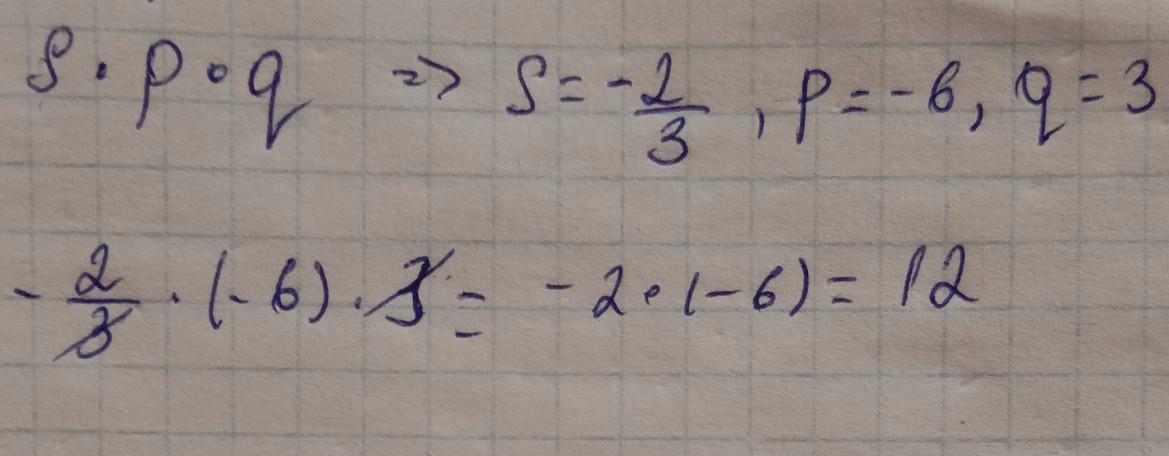 S · p · q => S = -2/3, p = -6, q = 3
-2/3 · (-6) · 3 = -2 · (-6) = 12